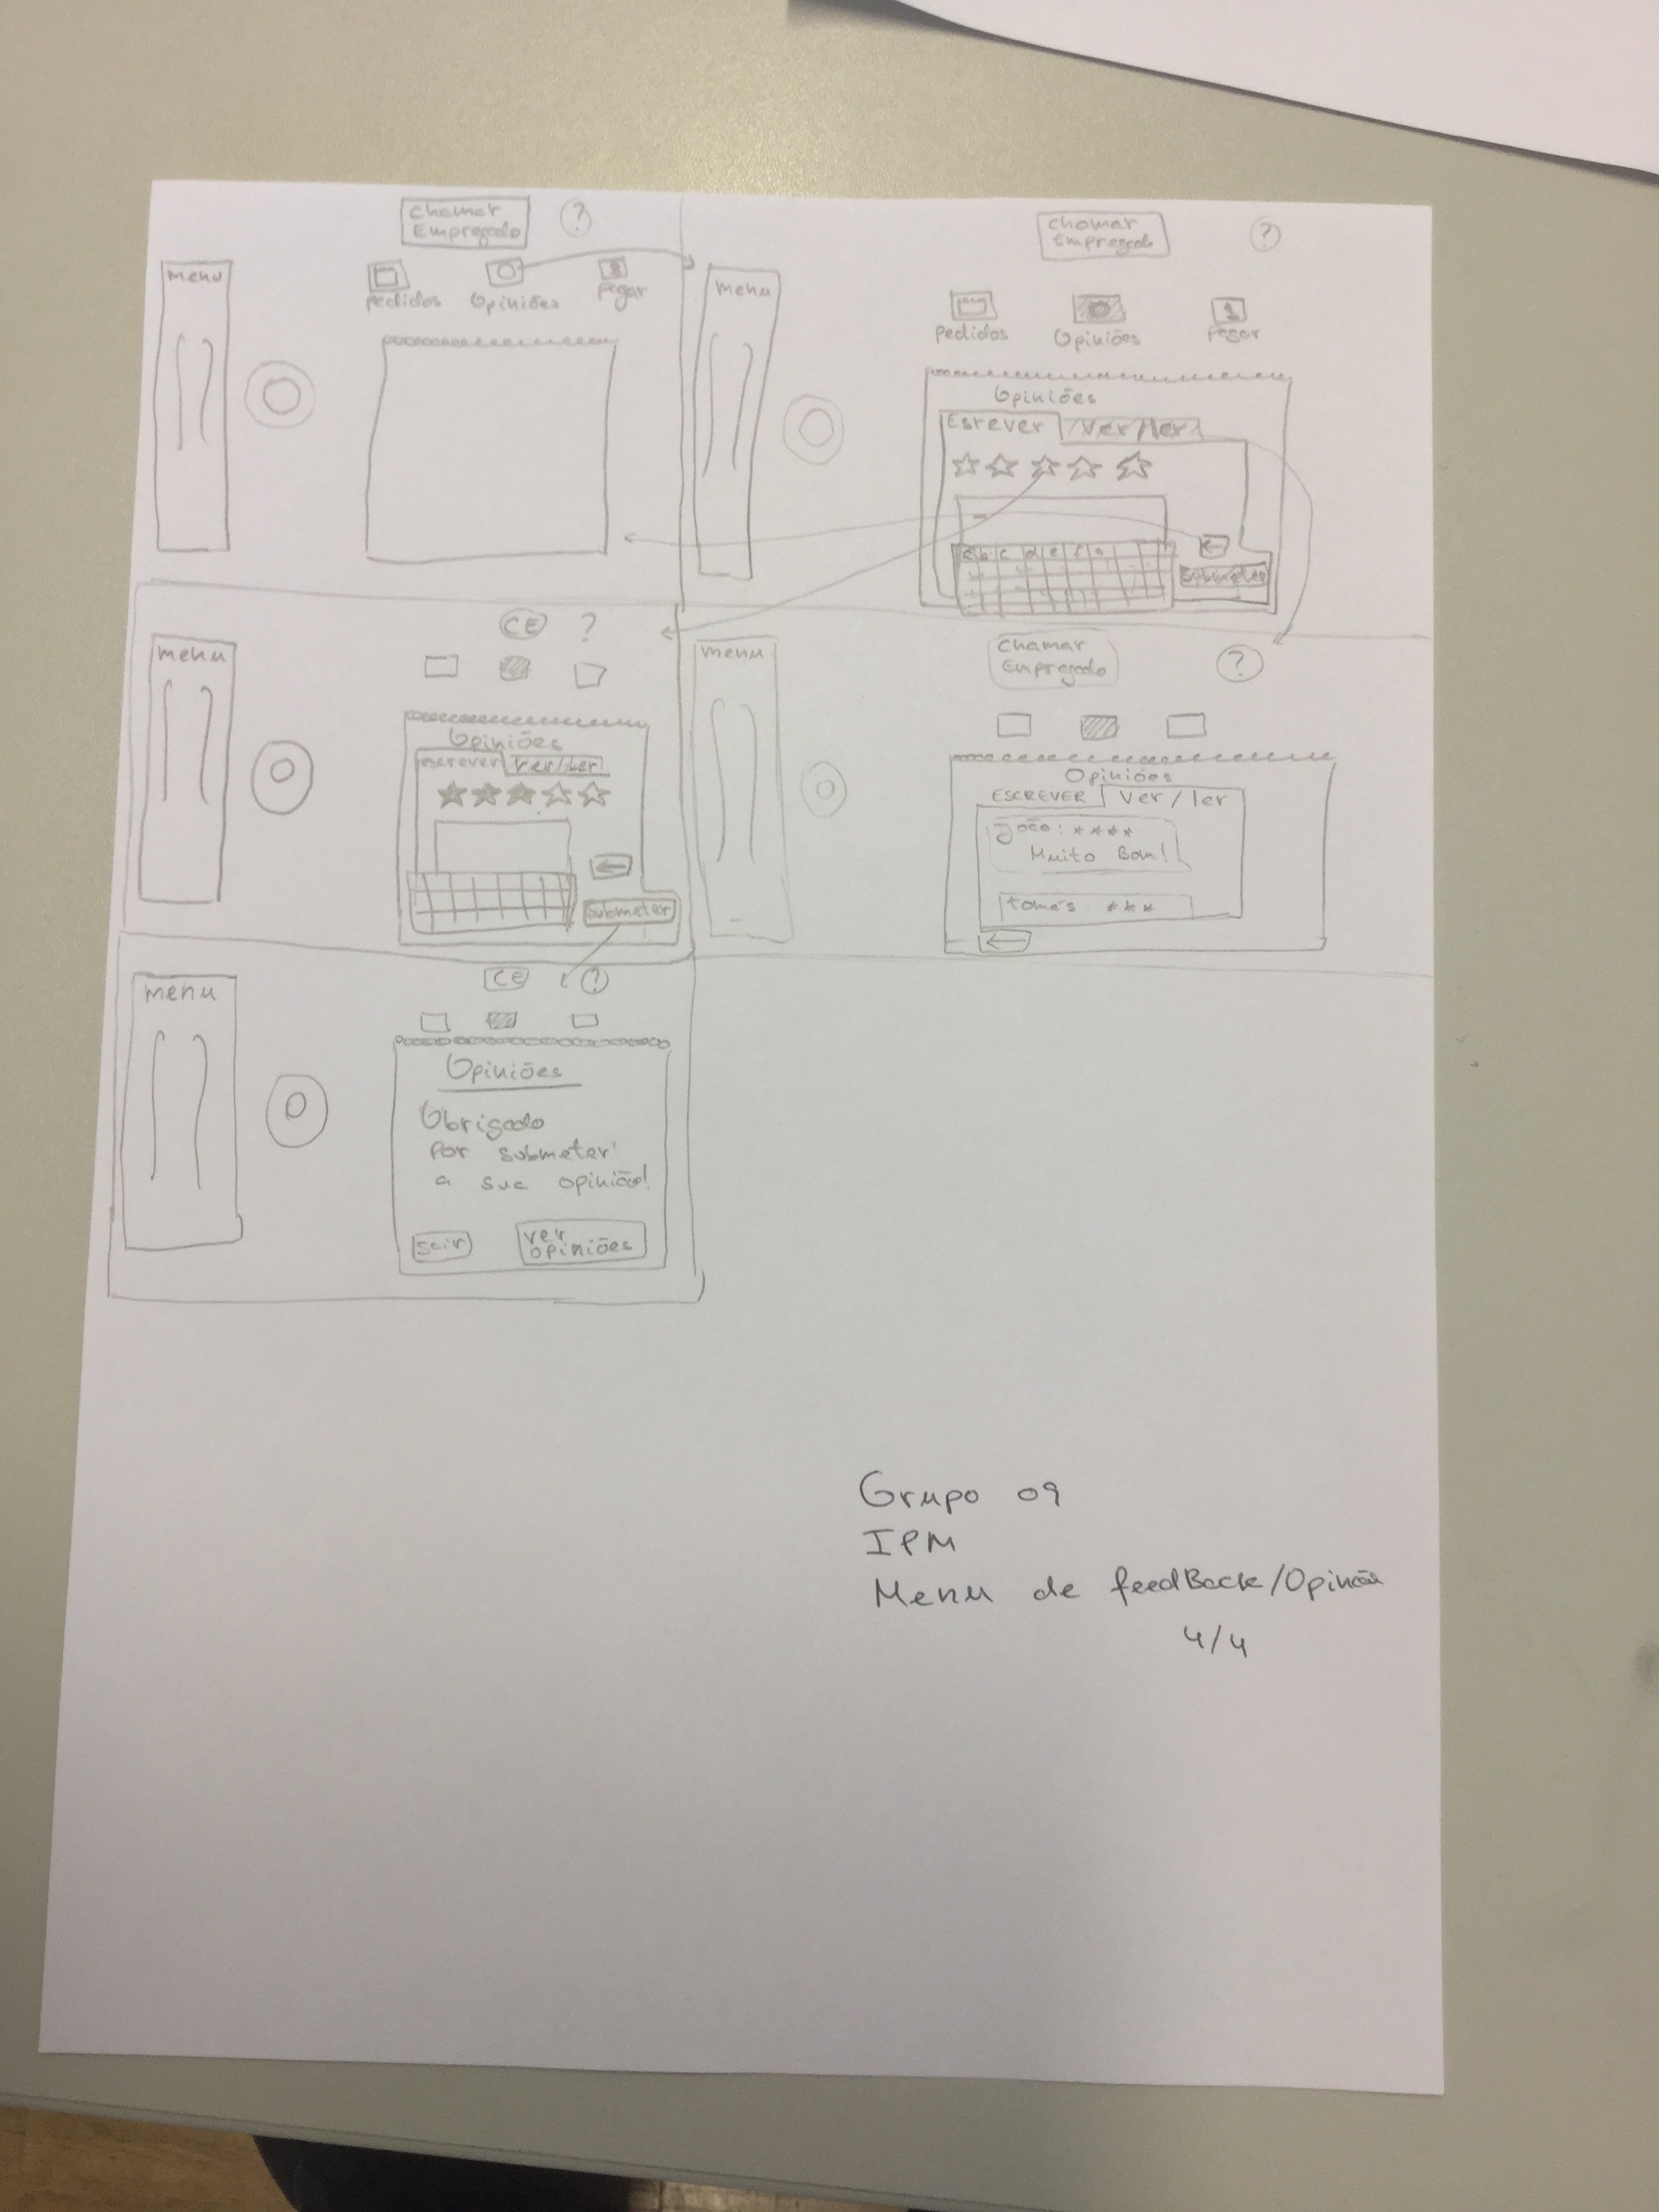 Chamar
Empregado
?
menu
Pedidos
Opiniões
Pagar
Chamar
Empregado
?
menu
Pedidos
Opiniões
Pagar
Opiniões
Escrever
Ver/ler
a b c d e f g
Submeter
menu
CE
?
Opiniões
escrever
Ver/Ler
Submeter
menu
Chamar
Empregado
?
Opiniões
ESCREVER
Ver/ler
João: ****
Muito Bom!
tomás: ***
menu
CE
?
Opiniões
Obrigado
por submeter
a sua opinião!
Sair
ver
opiniões
Grupo 09
IPM
Menu de feedBack/Opinião
4/4